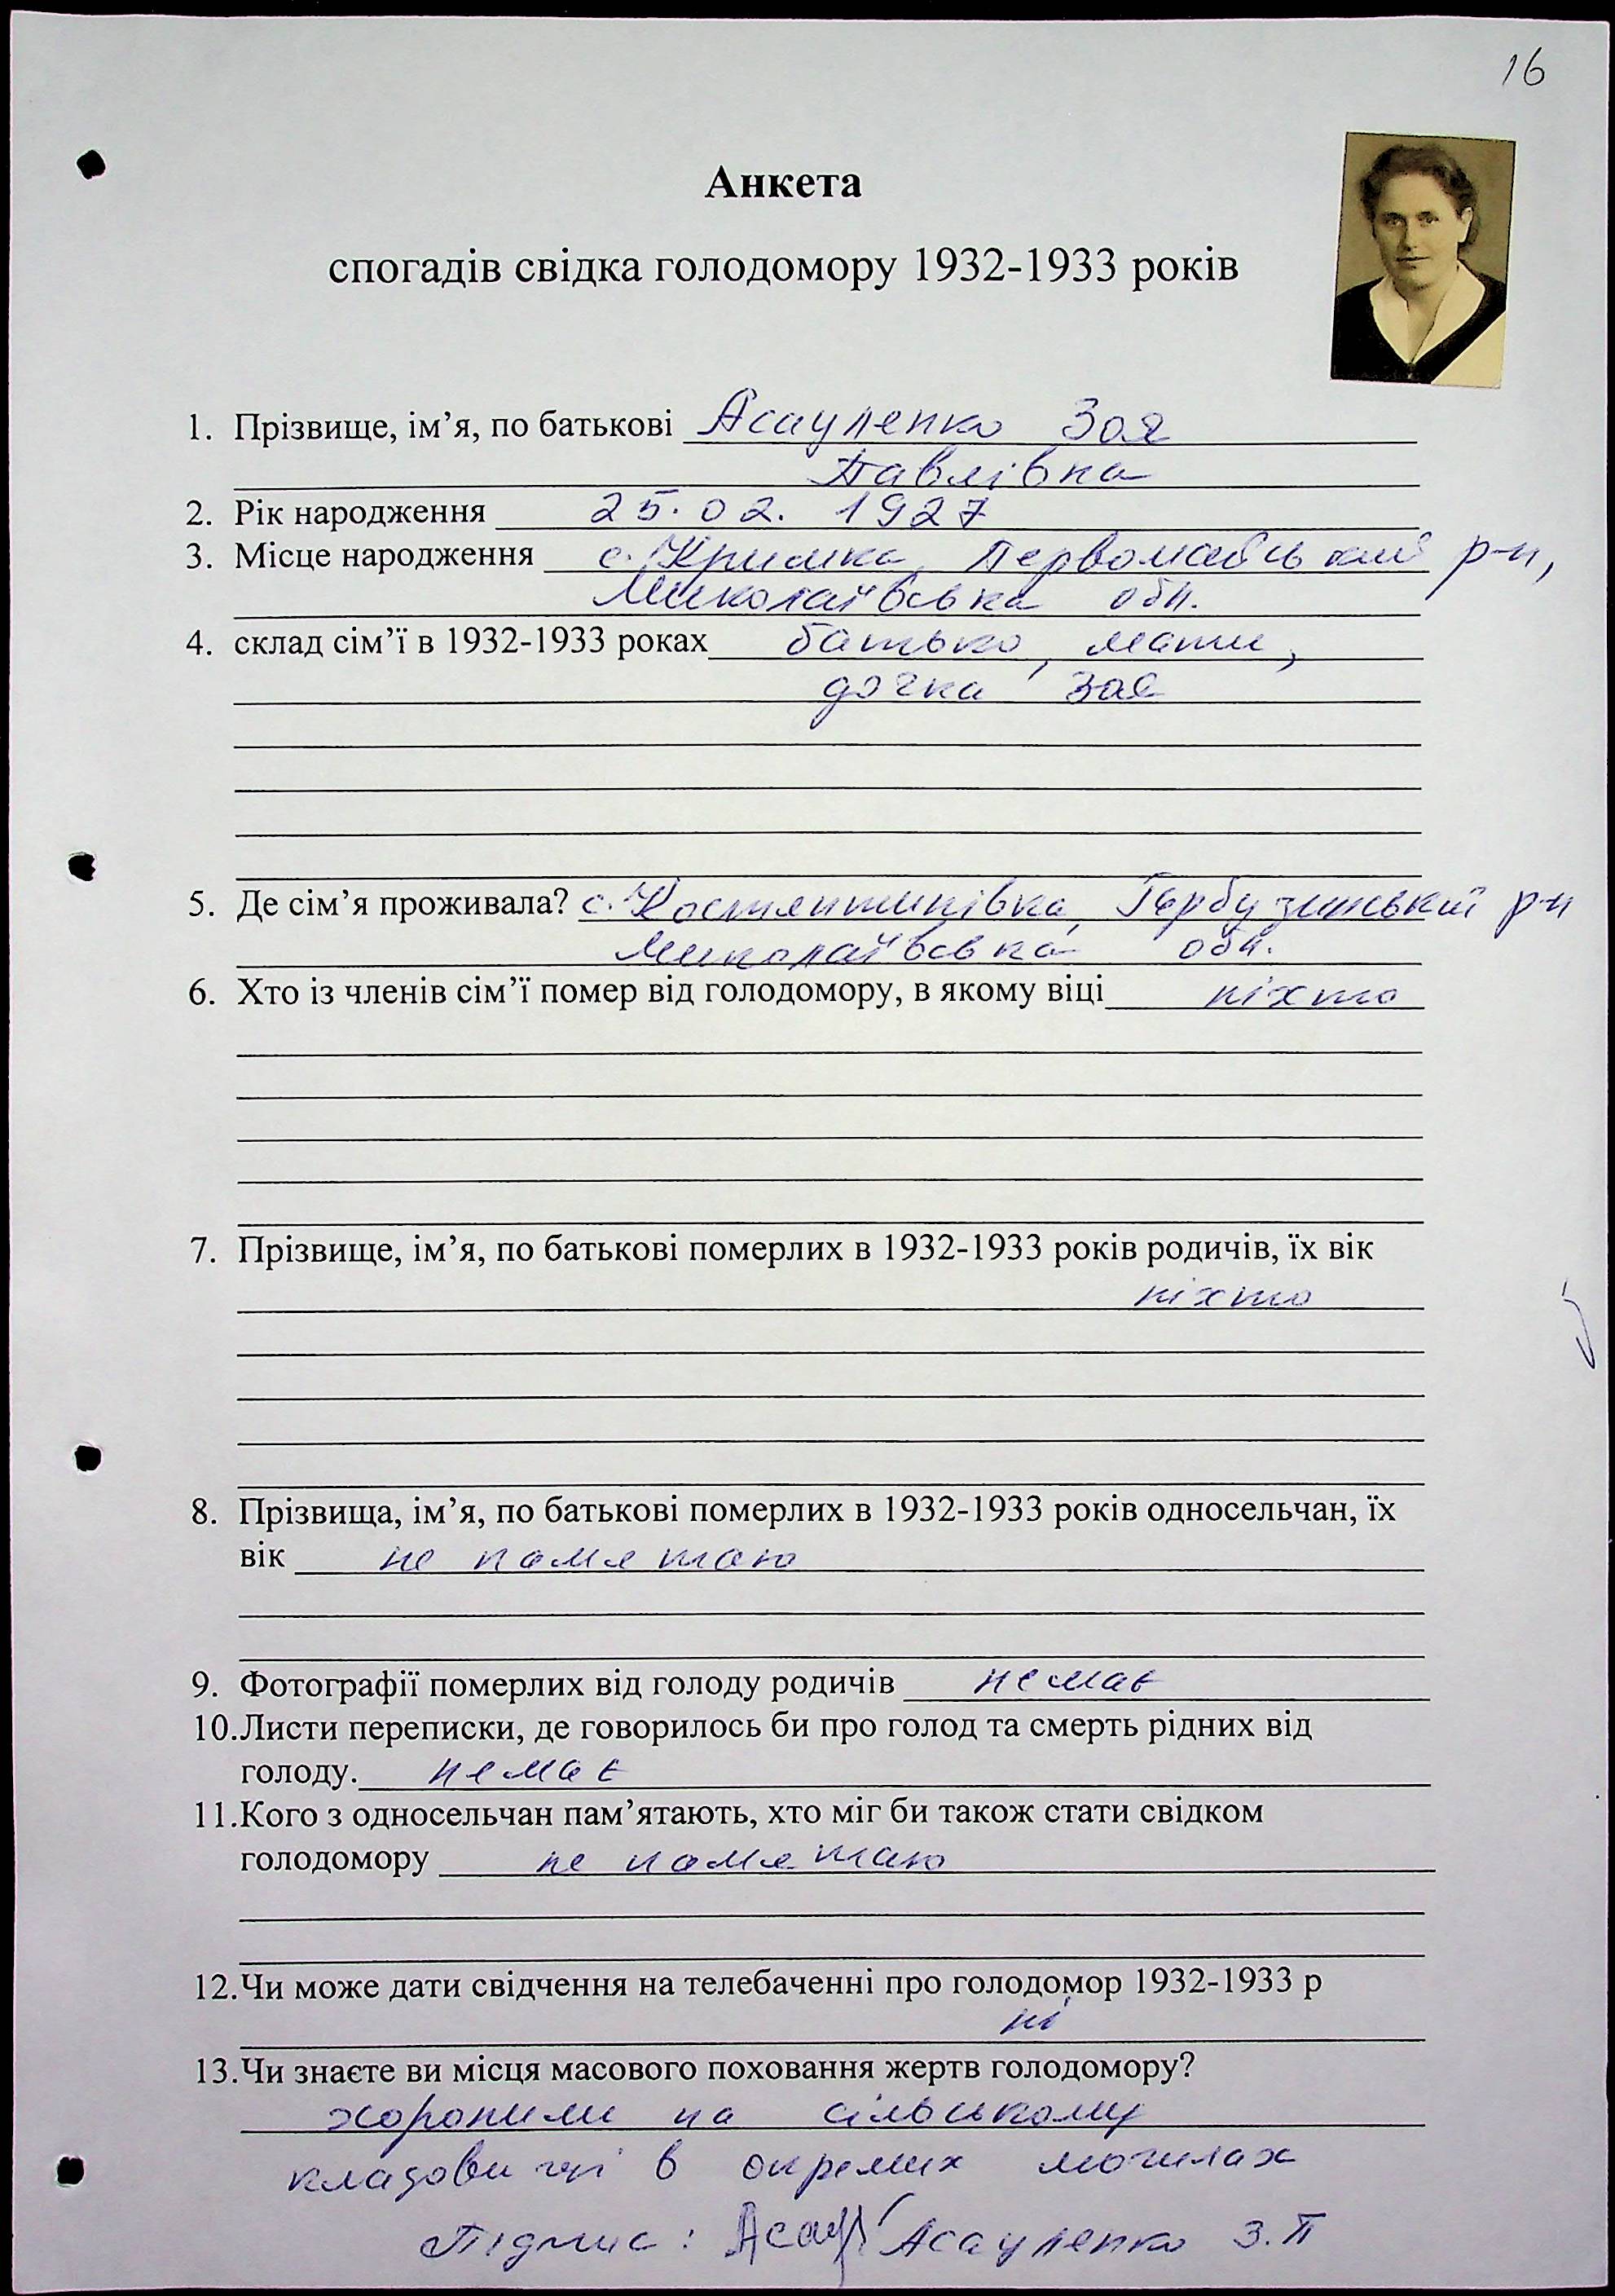 16
Анкета
спогадів свідка голодомору 1932-1933 років
1. Прізвище, ім’я, по батькові Асауленко Зоя
Павлівна
2. Рік народження 25.02.1927
3. Місце народження с. Кримка, Первомайський р-н,
Миколаївська обл.
4. склад сім’ї в 1932-1933 роках батько, мати,
дочка Зоя
5. Де сім’я проживала? с. Костянтинівка, Гарбузинський р-н
Миколаївська обл.
6. Хто із членів сім’ї помер від голодомору, в якому віці ніхто
7. Прізвище, ім’я, по батькові померлих в 1932-1933 років родичів, їх вік
ніхто
8. Прізвища, ім’я, по батькові померлих в 1932-1933 років односельчан, їх
вік не памятаю
9. Фотографії померлих від голоду родичів немає
10.Листи переписки, де говорилось би про голод та смерть рідних від
голоду. немає
11.Кого з односельчан пам’ятають, хто міг би також стати свідком
голодомору не памятаю
12.Чи може дати свідчення на телебаченні про голодомор 1932-1933 р
ні
13.Чи знаєте ви місця масового поховання жертв голодомору?
хоронили на сільському
кладовищі в окремих могилах
Підпис: Асау Асауленко З.П